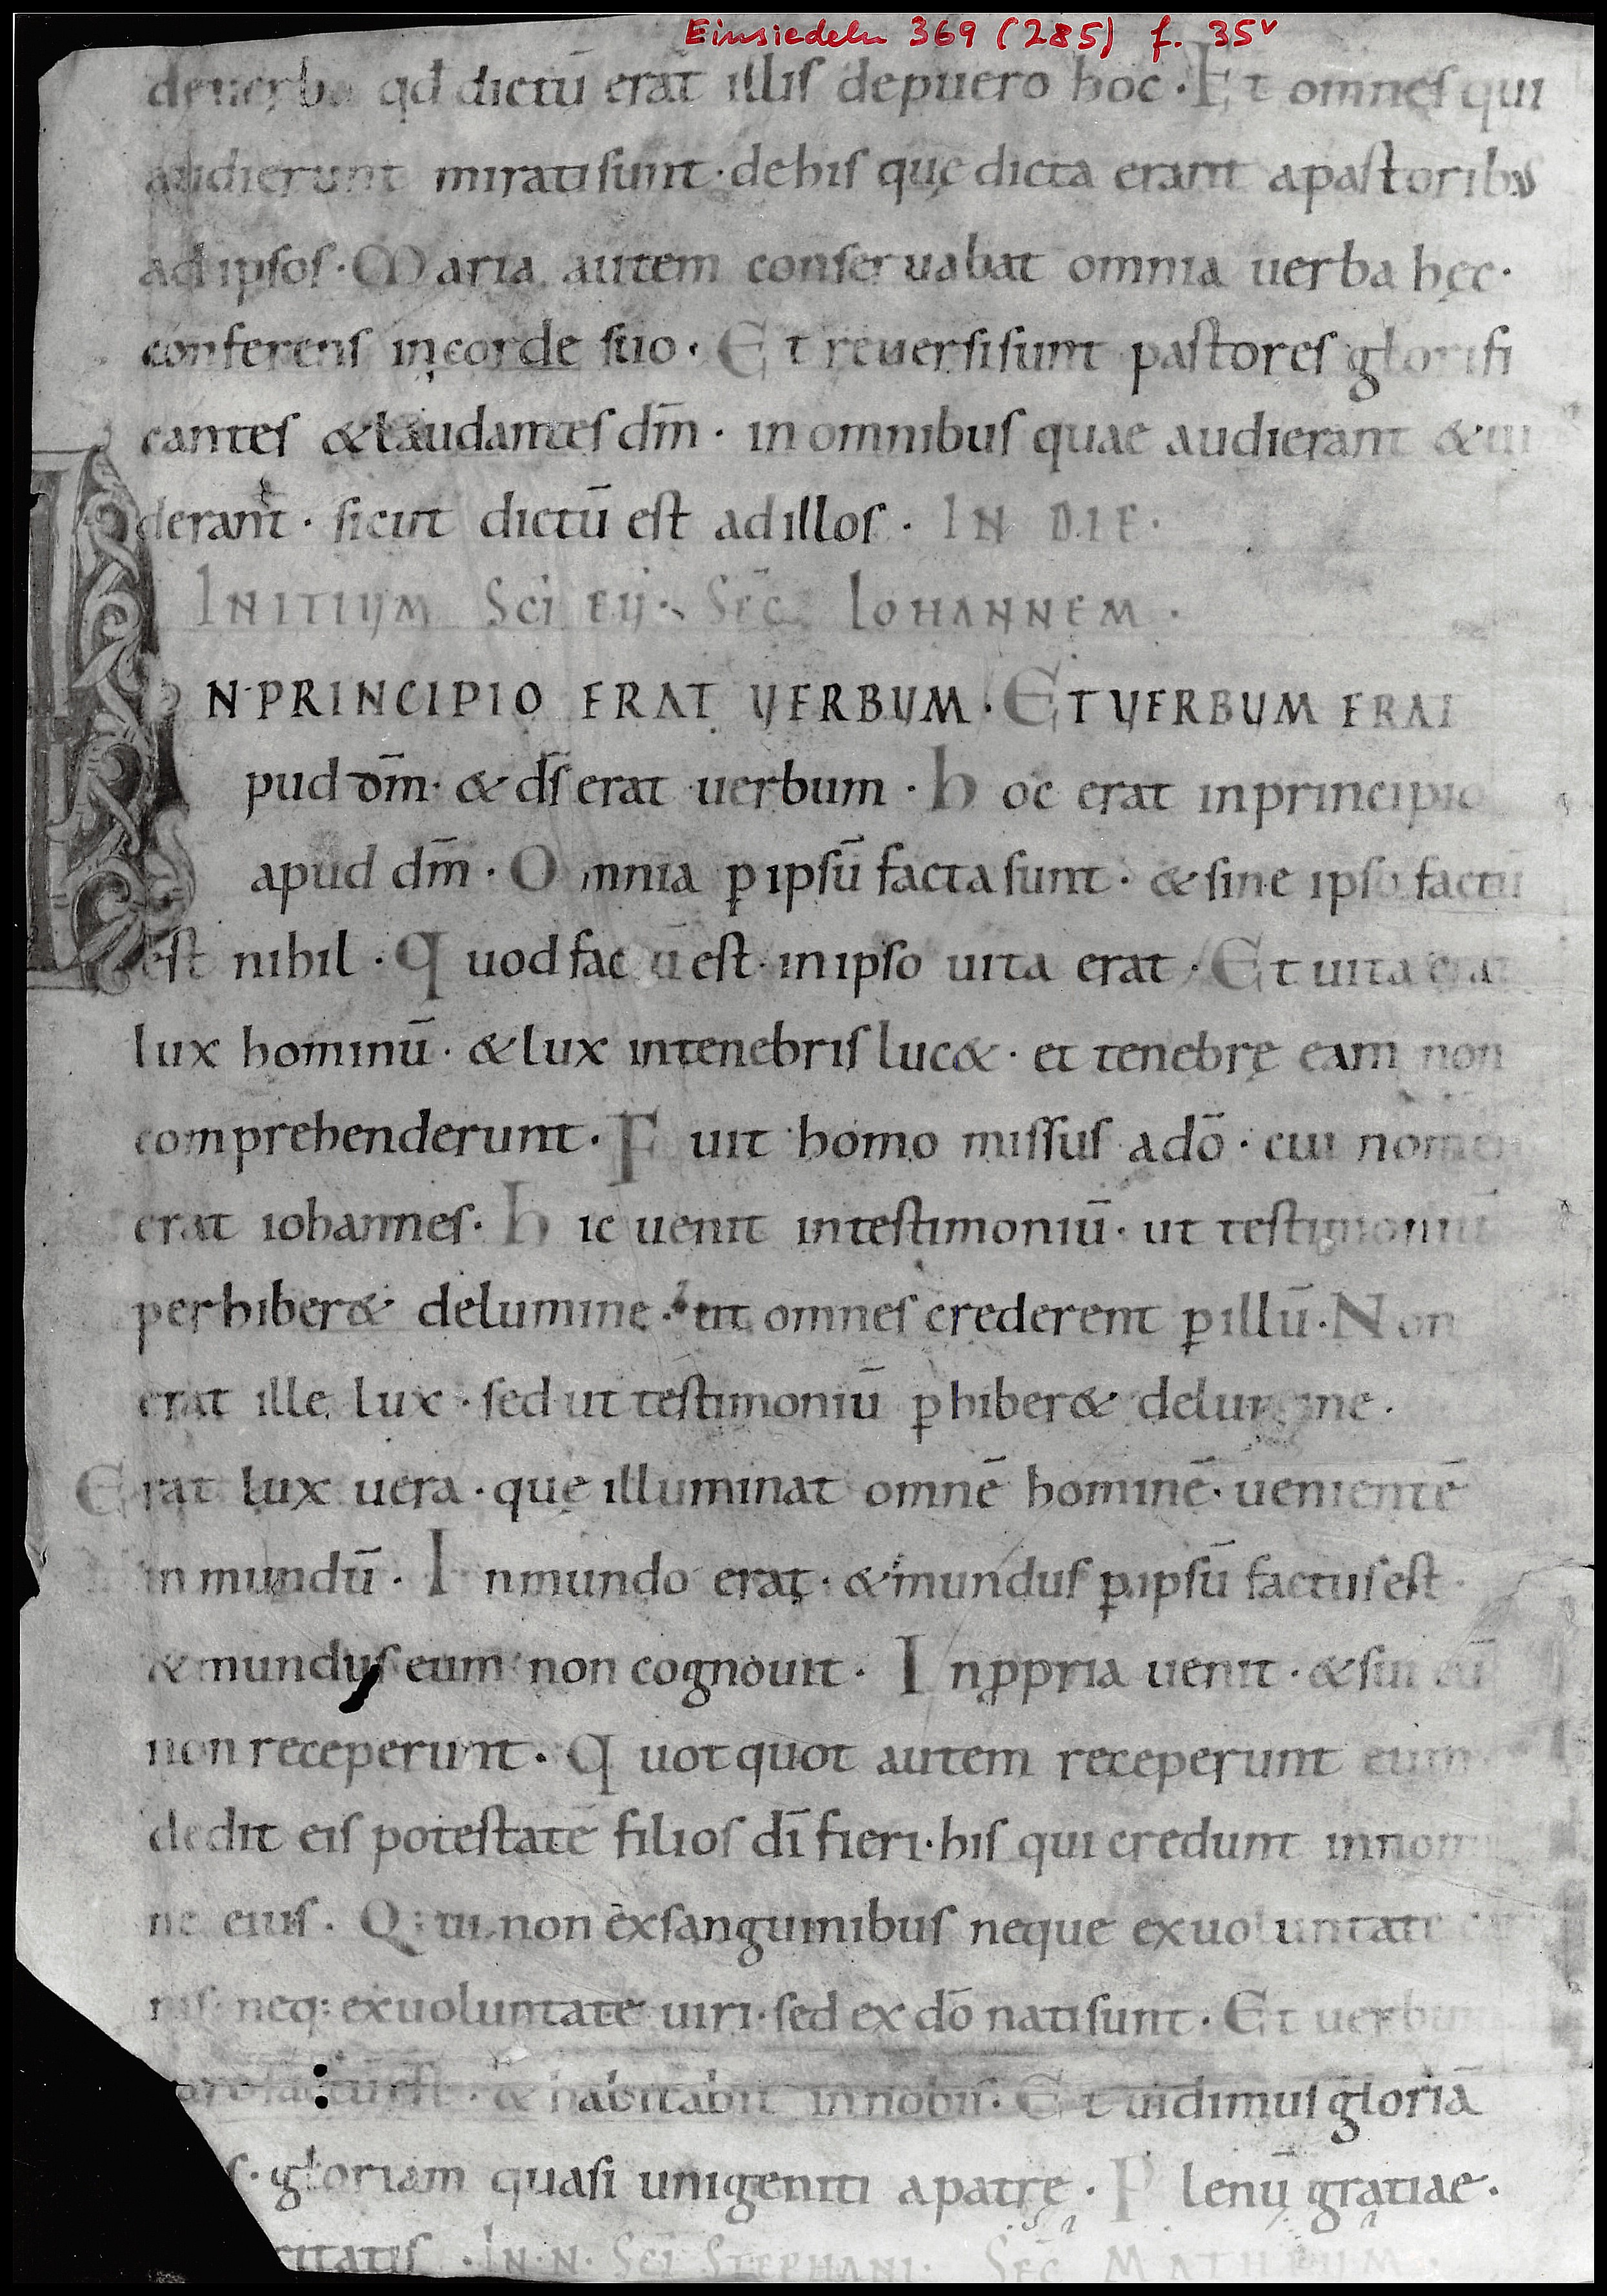 Einsiedeln 369 (285) f. 35v
de uerbo qd̄ dictū erat illis depuero hoc · Et omnes qui
audierunt miratisunt · dehis quę dicta erant apastoribus
adipsos · Maria autem conseruabat omnia uerba hęc ·
conferens incorde suo · Et reuersisunt pastores glorifi
cantes & laudantes dm̄ · in omnibus quae audierant & ui
derant · sicut dictū est adillos · IN DIE ·
INITIUM SCI EU · SEC̄ IOHANNEM ·
IN PRINCIPIO ERAT UERBUM · ET UERBUM ERAT
pud dm̄ · & ds̄ erat uerbum · hoc erat inprincipio
apud dm̄ · Omnia ꝑ ipsū facta sunt · & sine ipso factū
est nihil · Quod fac ū est · inipso uita erat · Et uita erat
lux hominū · & lux intenebris luc& · et tenebrę eam non
comprehenderunt · Fuit homo missus adō · cui nomen
erat iohannes · hic uenit intestimoniū · ut testimoniū
perhiber& delumine · ut omnes crederent ꝑ illū · Non
erat ille lux · sed ut testimoniū ꝑhiber& delumine ·
Erat lux uera · quę illuminat omnē hominē · uenientē
in mundū · Inmundo erat · & mundus ꝑ ipsū factus est ·
& mundus eum non cognouit · Inꝓpria uenit · & sui eū
non receperunt · Quotquot autem receperunt eum
dedit eis potestatē filios dī fieri · his qui credunt innomi
ne eius · Qui non exsanguinibus neque exuoluntate car
nis · neq: exuoluntate uiri · sed ex dō nati sunt · Et uerbum
caro factū est · & habitabit innobis · Et uidimus gloriā
s · gloriam quasi unigeniti apatre · Plenū gratiae ·
ritatis · IN · N · SCI STEPHANI · SEC̄ MATHEUM ·